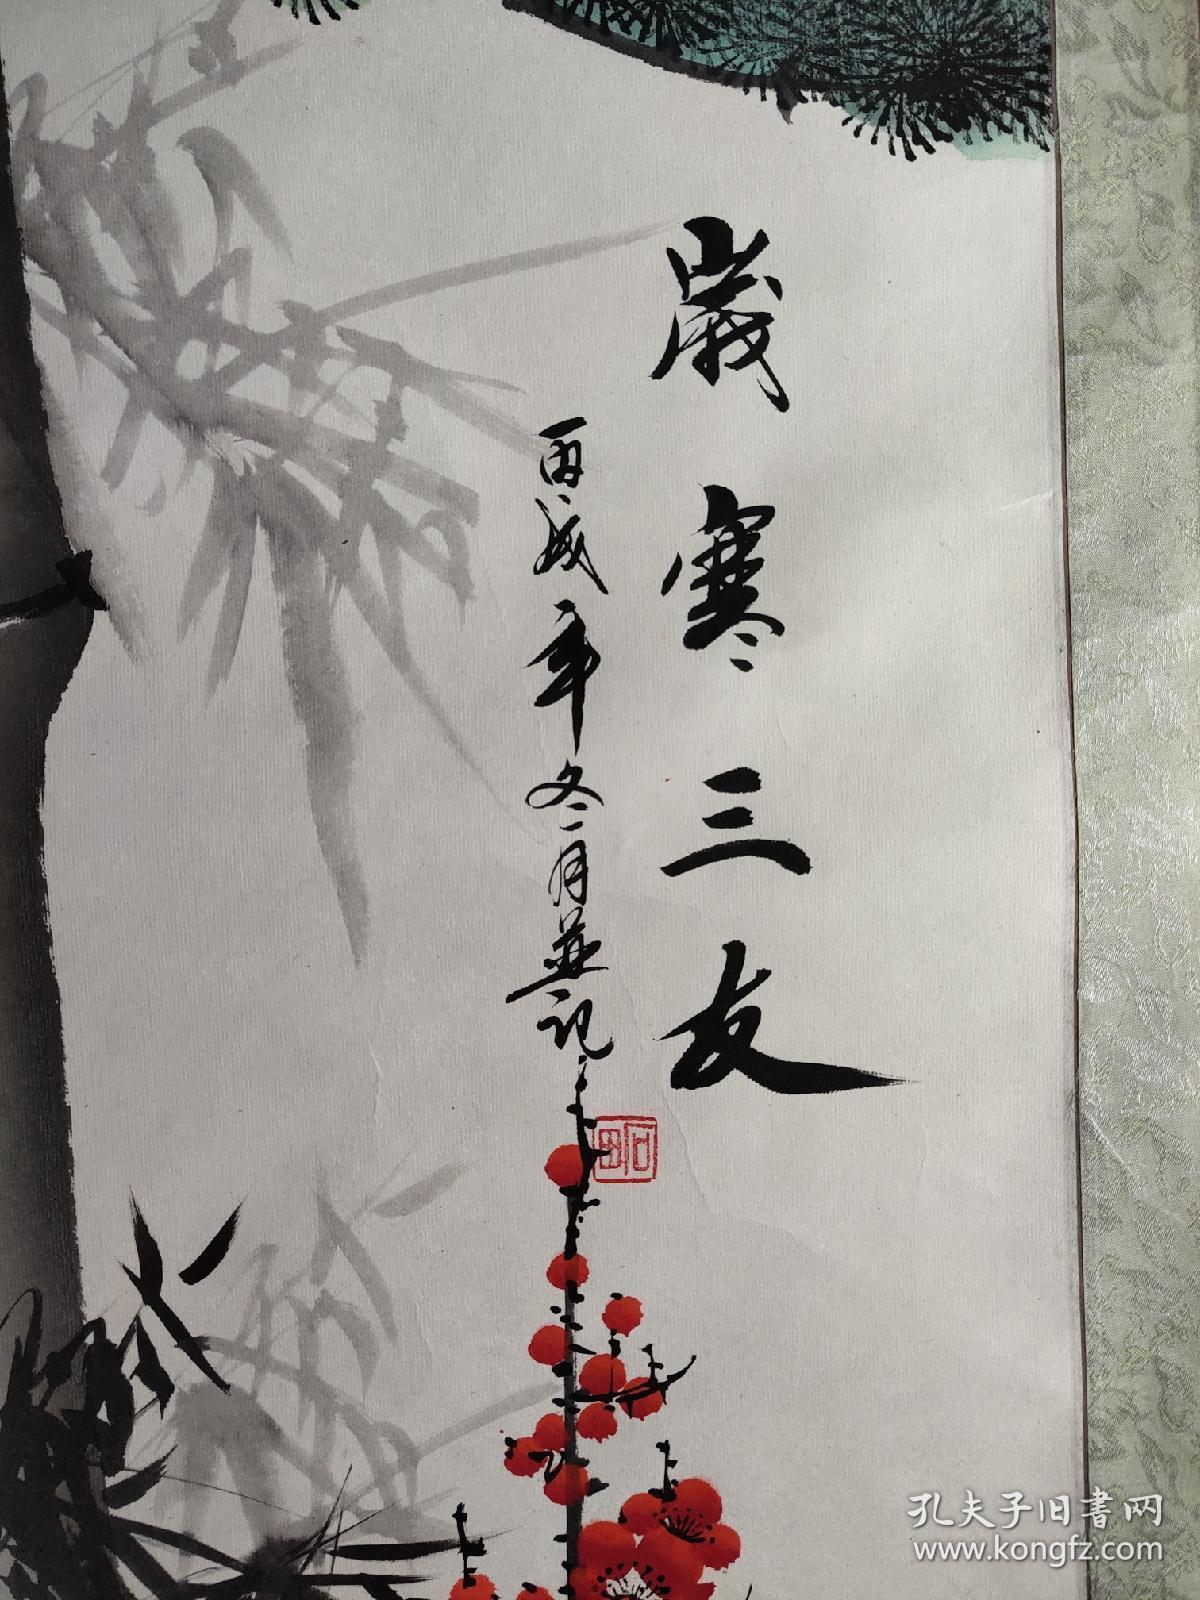 歲寒三友
丙戌年冬月並記
石田
孔夫子旧書网
www.kongfz.com